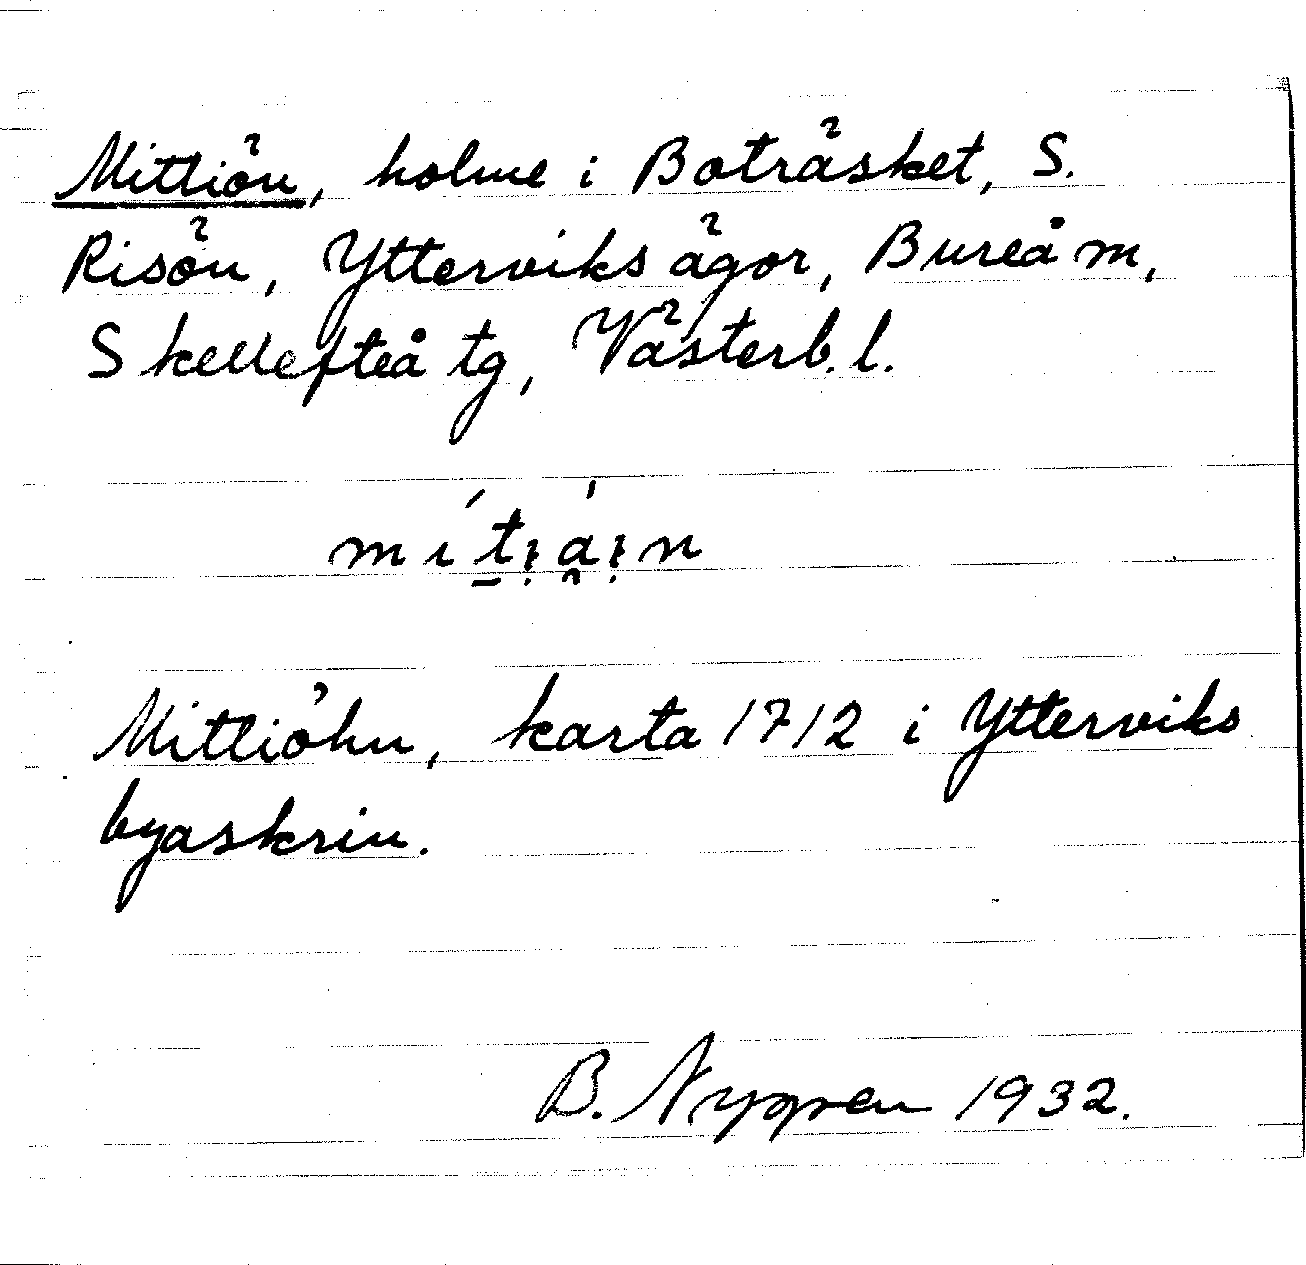 Mittiön, holme i Boträsket, S.
Risön, Ytterviks ägor, Bureå m,
Skellefteå tg, Västerb. l.
Mittiöhn, karta 1712 i Ytterviks
byaskrin.
B. Nygren 1932.